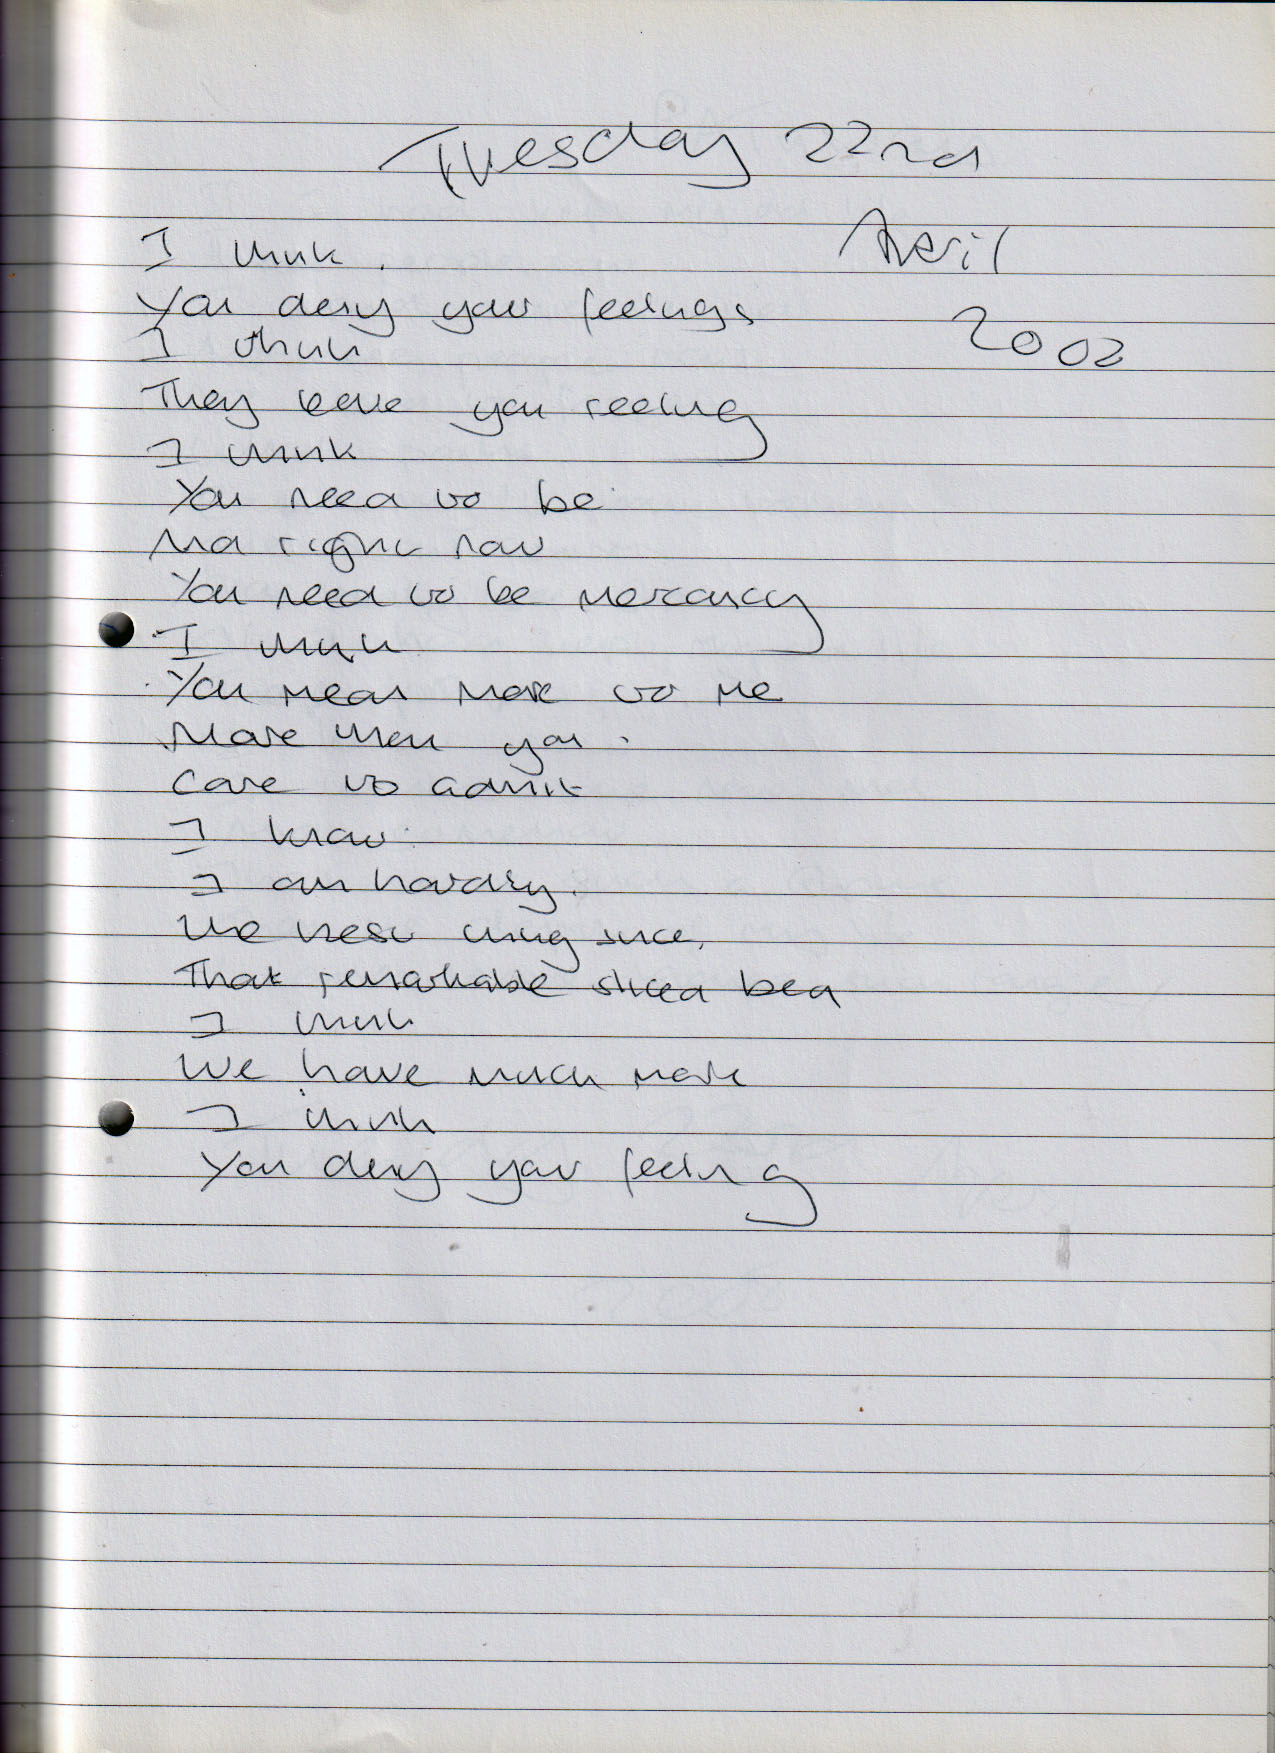 Tuesday 22nd
April
2002
I think
You deny your feelings
I think
They leave you reeling
I think
You need to be
And right now
You need to be mercancy
I think
You mean more to me
More than you
Care to admit
I know
I am hardly
the next thing since
That remarkable sliced bed
I think
We have much more
I think
You deny your feeling